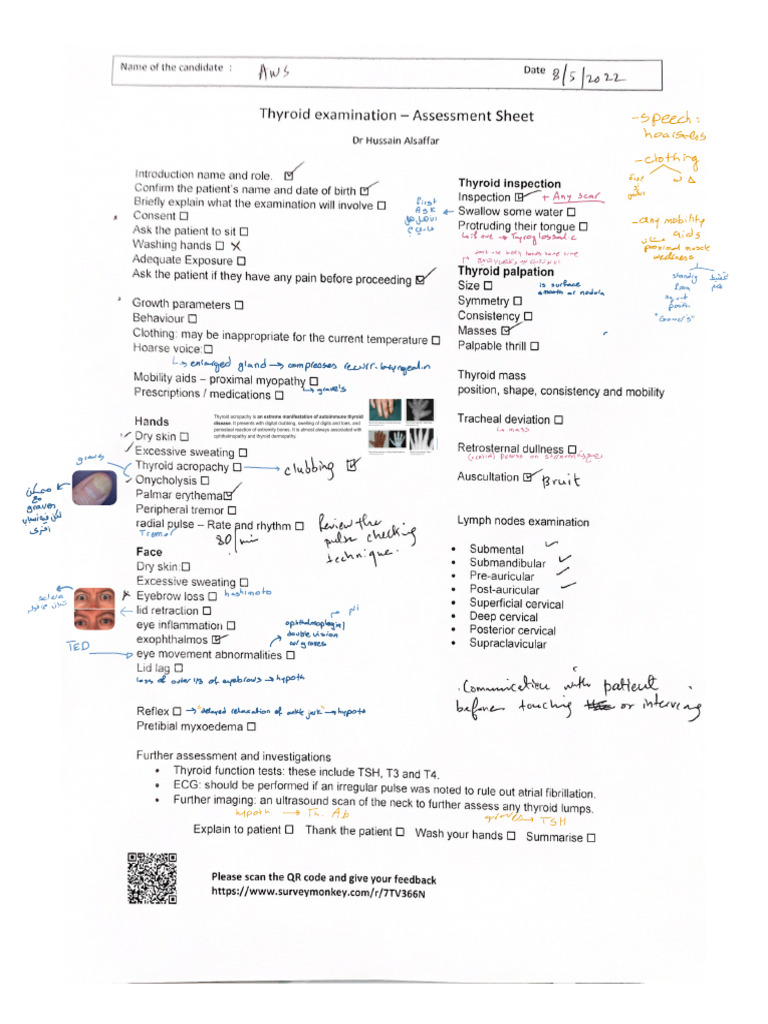 Name of the candidate : Aws
Date 8/5/2022
Thyroid examination – Assessment Sheet
Dr Hussain Alsaffar
-speech:
-clothing
-any mobility
aids
proximal muscle
Introduction name and role. ☑
Confirm the patient's name and date of birth ☑
Briefly explain what the examination will involve ☐
Consent ☐
Ask the patient to sit ☐
Washing hands ☐ x
Adequate Exposure ☐
Ask the patient if they have any pain before proceeding ☑
Growth parameters ☐
Behaviour ☐
Clothing: may be inappropriate for the current temperature ☐
Hoarse voice: ☐
↳ enlarged gland → compresses
Mobility aids – proximal myopathy ☐
↳ grave's
Prescriptions / medications ☐
Hands
Thyroid acropachy is an extreme manifestation of autoimmune thyroid
disease. It presents with digital clubbing, swelling of digits and toes, and
periosteal reaction of extremity bones. It is almost always associated with
ophthalmopathy and thyroid dermopathy.
Dry skin ☐
Excessive sweating ☐
graves
Thyroid acropachy ☐ → clubbing ☑
Onycholysis ☐
Palmar erythema ☑
Peripheral tremor ☐
radial pulse – Rate and rhythm ☐
Tremor
80/min
Review the
pulse checking
technique.
graves
Face
Dry skin: ☐
Excessive sweating ☐
Eyebrow loss ☐ hashimoto
sclera
lid retraction ☐
eye inflammation ☐
exophthalmos ☑
double vision
TED
eye movement abnormalities ☐
Lid lag ☐
loss of outer 1/3 of eyebrows → hypoth
Reflex ☐ → "delayed relaxation of ankle jerk" → hypoth
Pretibial myxoedema ☐
Thyroid inspection
Inspection ☑ + Any scar
first
Ask
Swallow some water ☐
Protruding their tongue ☐
Thyroid palpation
Size ☐
is surface
smooth or nodula
Symmetry ☐
Consistency ☐
Masses ☑
Palpable thrill ☐
"Gower's"
Thyroid mass
position, shape, consistency and mobility
Tracheal deviation ☐
↳ mass
Retrosternal dullness ☐
Auscultation ☑ Bruit
Lymph nodes examination
• Submental ✓
• Submandibular ✓
• Pre-auricular ✓
• Post-auricular ✓
• Superficial cervical
• Deep cervical
• Posterior cervical
• Supraclavicular
. Communication with patient
before touching or
Further assessment and investigations
• Thyroid function tests: these include TSH, T3 and T4.
• ECG: should be performed if an irregular pulse was noted to rule out atrial fibrillation.
• Further imaging: an ultrasound scan of the neck to further assess any thyroid lumps.
hypoth → Th. Ab
→ TSH
Explain to patient ☐ Thank the patient ☐ Wash your hands ☐ Summarise ☐
Please scan the QR code and give your feedback
https://www.surveymonkey.com/r/7TV366N